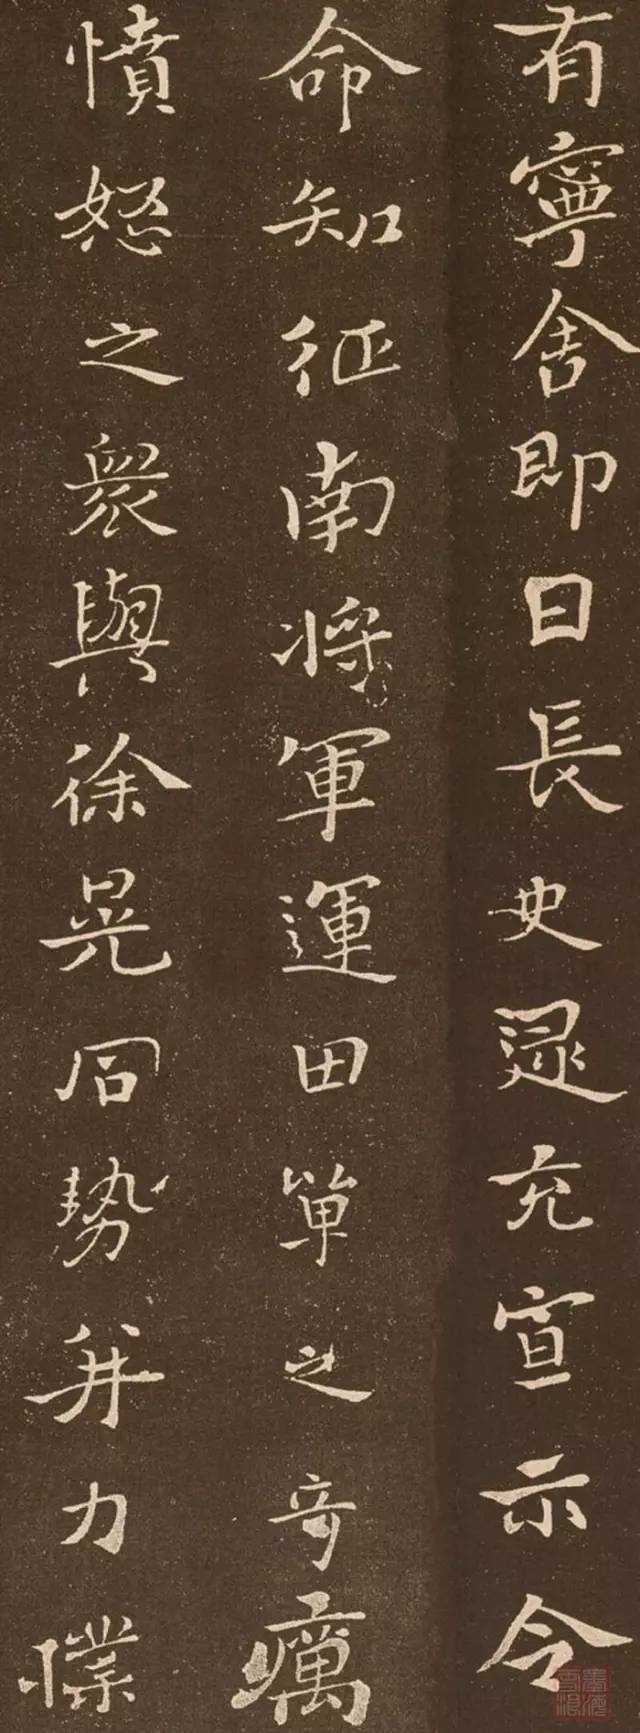 有寧舍即日長史逯充宣示令
命知征南將軍運田單之奇厲
憤怒之衆與徐晃同勢并力撲